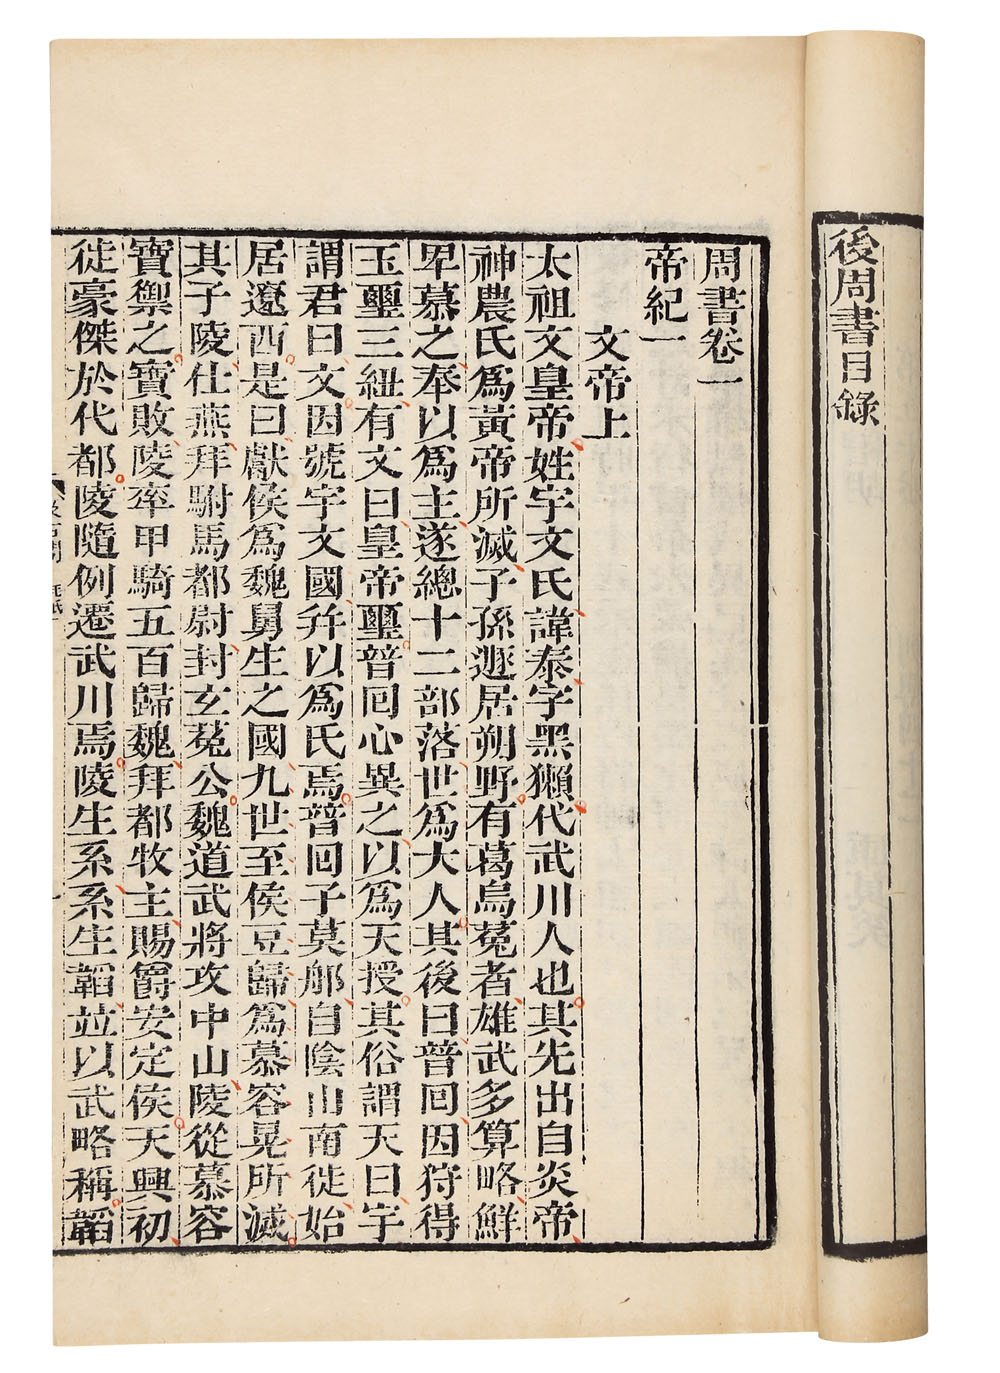 後周書目錄
周書卷一
帝紀一
文帝上
太祖文皇帝姓宇文氏諱泰字黑獺代武川人也其先出自炎帝
神農氏爲黃帝所滅子孫遯居朔野有葛烏菟者雄武多算略鮮
卑慕之奉以爲主遂總十二部落世爲大人其後曰普回因狩得
玉璽三紐有文曰皇帝璽普回心異之以爲天授其俗謂天曰宇
謂君曰文因號宇文國幷以爲氏焉普回子莫那自陰山南徙始
居遼西是曰獻侯爲魏舅生之國九世至侯豆歸爲慕容晃所滅
其子陵仕燕拜駙馬都尉封玄菟公魏道武將攻中山陵從慕容
寶禦之寶敗陵率甲騎五百歸魏拜都牧主賜爵安定侯天興初
徙豪傑於代都陵隨例遷武川焉陵生系系生韜竝以武略稱韜